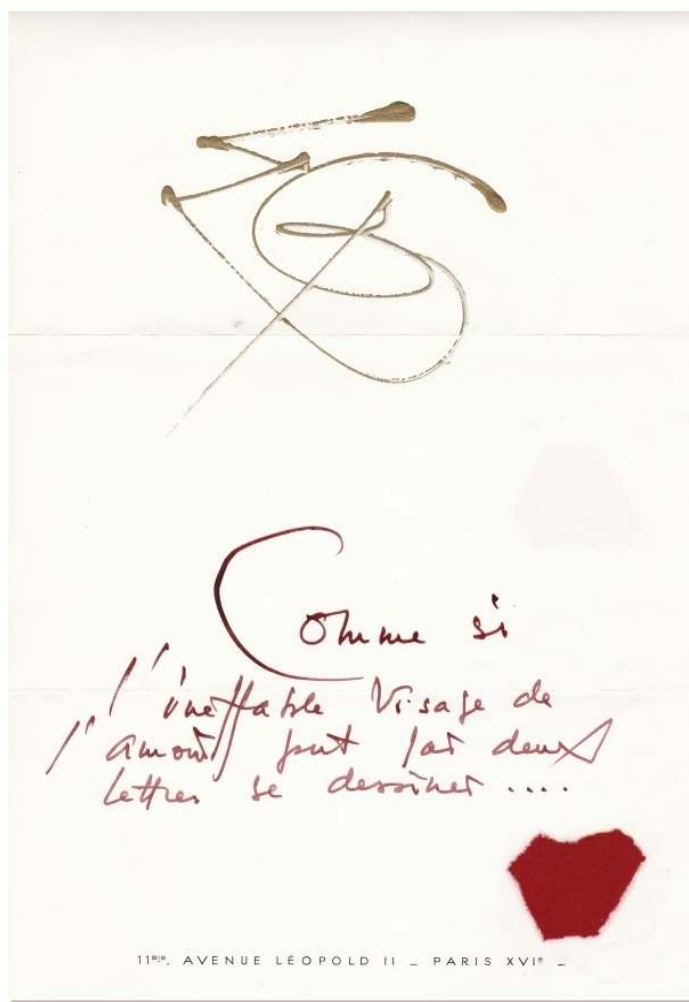 Comme si
l'ineffable Visage de
l'amour put par deux
lettres se dessiner ....
11BIS. AVENUE LÉOPOLD II _ PARIS XVIe _